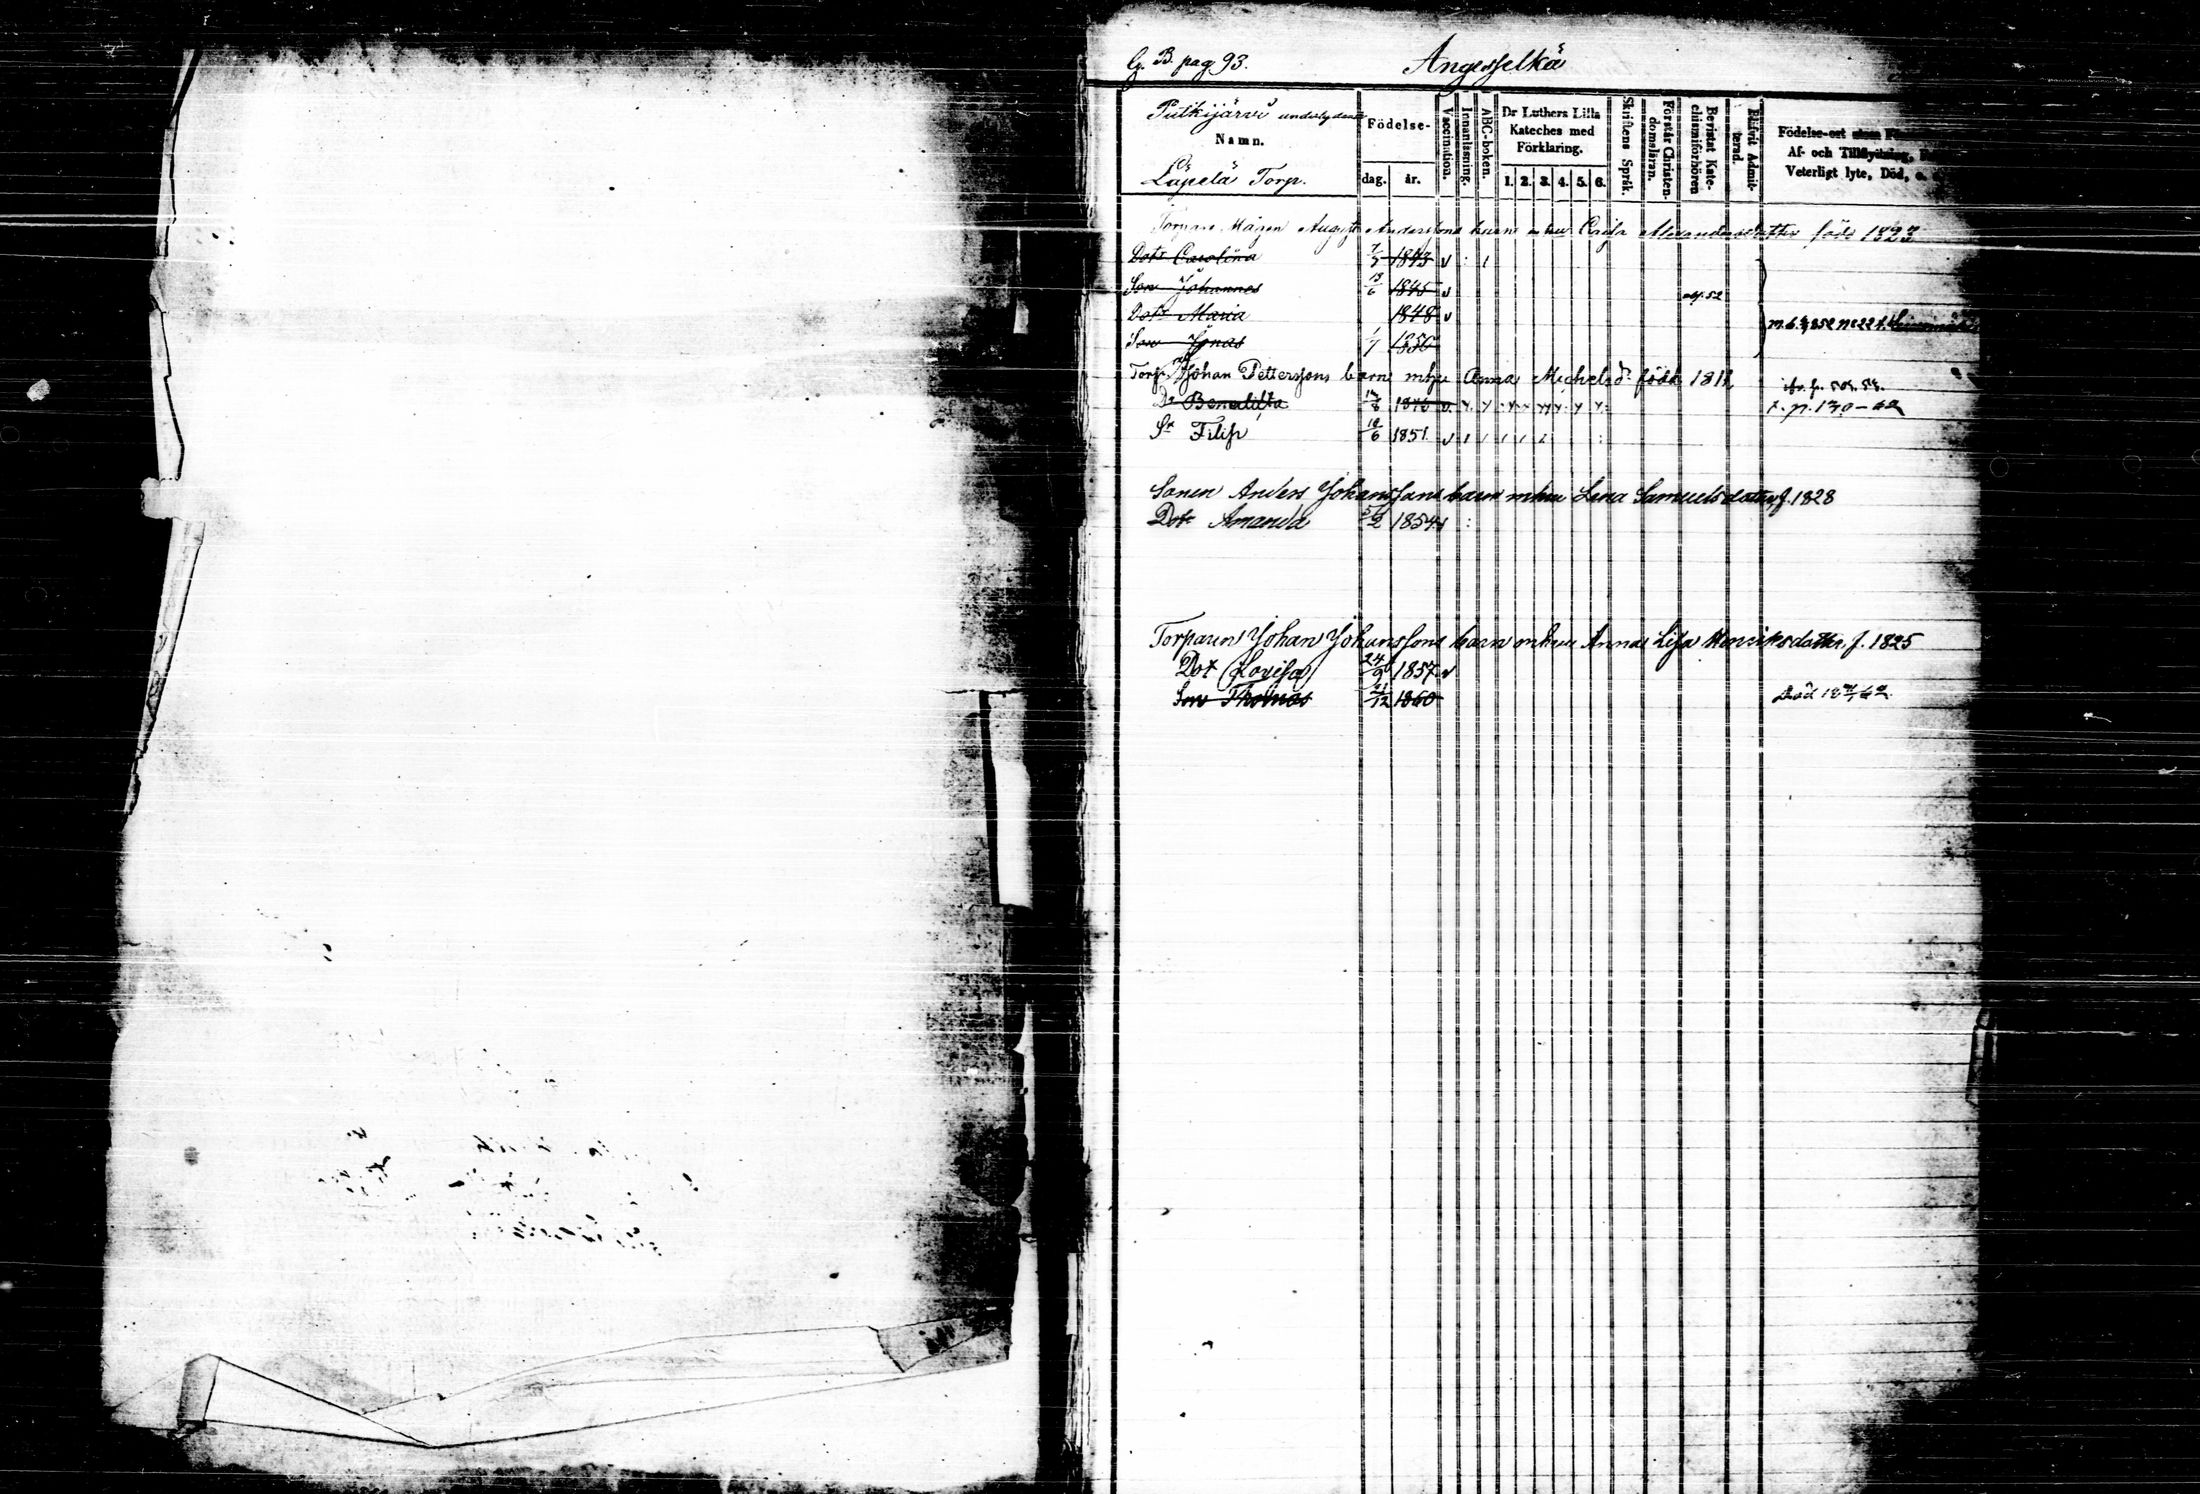 G. B. pag 93. Angesselkä
Putkijärvi underlydande
Namn.
Lapela Torp.
Födelse-
dag. år.
Vaccination.
Innanläsning.
ABC-boken.
Dr Luthers Lilla Kateches med Förklaring.
1. 2. 3. 4. 5. 6.
Skriftens Språk.
Förstår Christen-domsläran.
Bevistat Kate-chismiförhören
Blifvit Admit-terad.
Födelse-ort
Af- och Tillflyttning,
Veterligt lyte, Död, o.
Torpare Mågen August Anderssons barn m hu Cajsa Alexandersdotter född 1823
Dotr Carolina 1843 v
Son Johannes 13/6 1845 v
Dotr Maria 1848 v
Son Jonas 1850
Torp. Johan Petterssons barn m hu Anna Michelsd. född 1811
Dr Benedikta 1846 v
Sn Filip 18/6 1851 v
Sonen Anders Johanssons barn m hu Lena Samuelsdotter f. 1828
Dotr Amanda 1854 v
Torparen Johan Johanssons barn m hu Anna Lisa Henriksdotter f. 1825
Dotr Lovisa 24/9 1857 v
Son Thomas 21/12 1860 Död